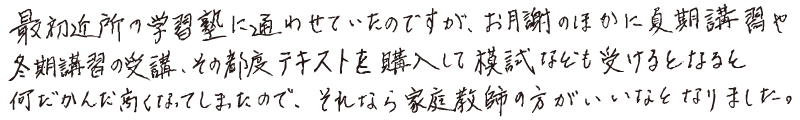 最初近所の学習塾に通わせていたのですが、お月謝のほかに夏期講習や
冬期講習の受講、その都度テキストを購入して模試なども受けるとなると
何だかんだ高くなってしまったので、それなら家庭教師の方がいいなとなりました。